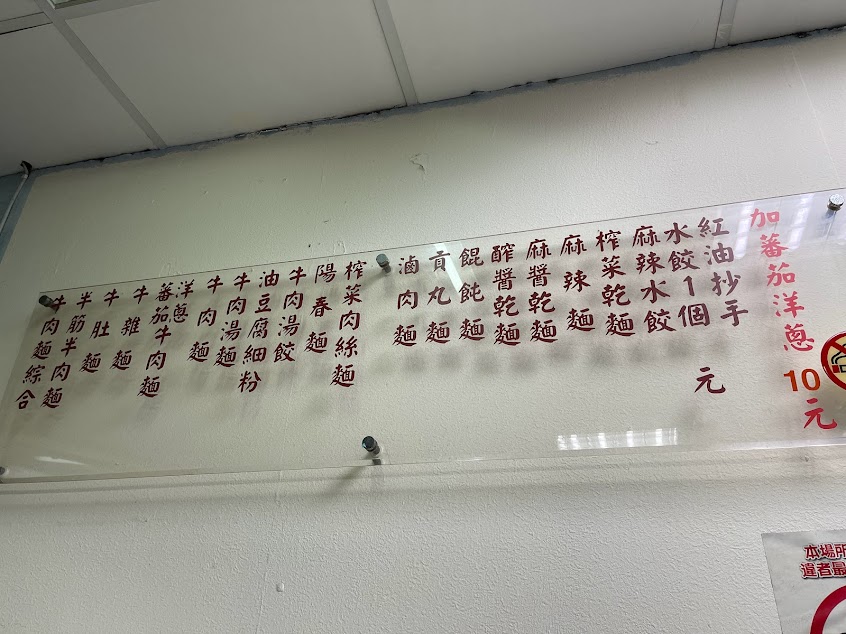 加蕃茄洋蔥10元
紅油抄手
水餃1個 元
麻辣水餃
榨菜乾麵
麻辣麵
麻醬乾麵
醡醬乾麵
餛飩麵
貢丸麵
滷肉麵
榨菜肉絲麵
陽春麵
牛肉湯餃
油豆腐細粉
牛肉湯麵
牛肉麵
洋蔥
蕃茄牛肉麵
牛雜麵
牛肚麵
半筋半肉麵
牛肉麵綜合
本場所
違者最